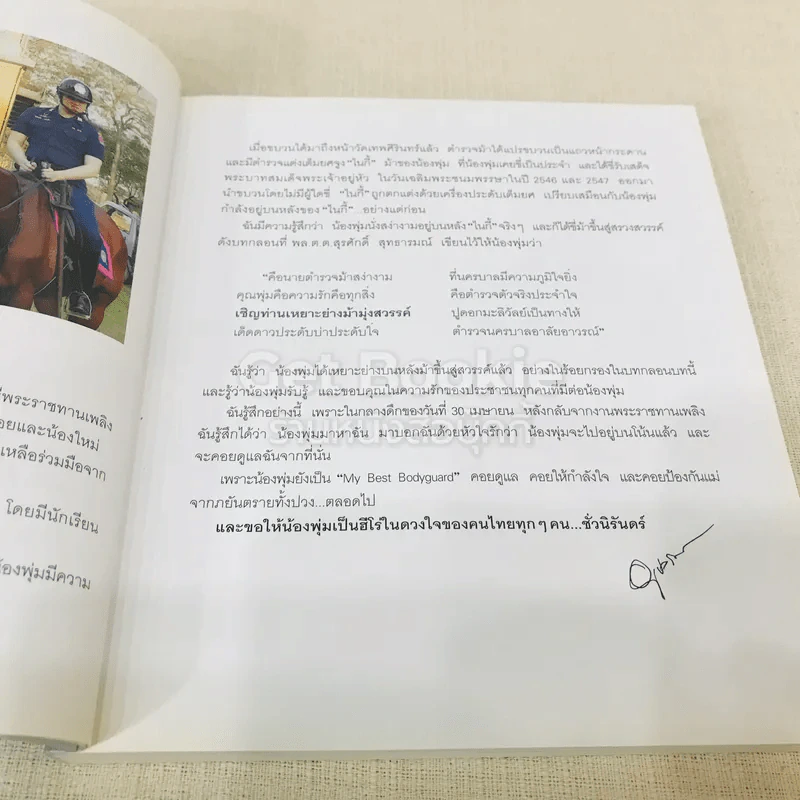 มีพระราชทานเพลิง
อยและน้องใหม่
เหลือร่วมมือจาก
โดยมีนักเรียน
น้องพุ่มมีความ
เมื่อขบวนได้มาถึงหน้าวัดเทพศิรินทร์แล้ว ตำรวจม้าได้แปรขบวนเป็นแถวหน้ากระดาน
และมีตำรวจแต่งเต็มยศจูง "ไนกี้" ม้าของน้องพุ่ม ที่น้องพุ่มเคยขี่เป็นประจำ และได้ขี่รับเสด็จ
พระบาทสมเด็จพระเจ้าอยู่หัว ในวันเฉลิมพระชนมพรรษาในปี 2546 และ 2547 ออกมา
นำขบวนโดยไม่มีผู้ใดขี่ "ไนกี้" ถูกตกแต่งด้วยเครื่องประดับเต็มยศ เปรียบเสมือนกับน้องพุ่ม
กำลังอยู่บนหลังของ "ไนกี้" ..อย่างแต่ก่อน
ฉันมีความรู้สึกว่า น้องพุ่มนั่งสง่างามอยู่บนหลัง "ไนกี้" จริงๆ และก็ได้ขี่ม้าขึ้นสู่สรวงสวรรค์
ดังบทกลอนที่ พล.ต.ต.สุรศักดิ์ สุทธารมณ์ เขียนไว้ให้น้องพุ่มว่า
"คือนายตำรวจม้าสง่างาม ที่นครบาลมีความภูมิใจยิ่ง
คุณพุ่มคือความรักคือทุกสิ่ง คือตำรวจตัวจริงประจำใจ
เชิญท่านเหยาะย่างม้ามุ่งสวรรค์ ปูดอกมะลิวัลย์เป็นทางให้
เด็ดดาวประดับบ่าประดับใจ ตำรวจนครบาลอาลัยอาวรณ์"
ฉันรู้ว่า น้องพุ่มได้เหยาะย่างบนหลังม้าขึ้นสู่สวรรค์แล้ว อย่างในร้อยกรองในบทกลอนบทนี้
และรู้ว่าน้องพุ่มรับรู้ และขอบคุณในความรักของประชาชนทุกคนที่มีต่อน้องพุ่ม
ฉันรู้สึกอย่างนี้ เพราะในกลางดึกของวันที่ 30 เมษายน หลังกลับจากงานพระราชทานเพลิง
ฉันรู้สึกได้ว่า น้องพุ่มมาหาฉัน มาบอกฉันด้วยหัวใจรักว่า น้องพุ่มจะไปอยู่บนโน้นแล้ว และ
จะคอยดูแลฉันจากที่นั่น
เพราะน้องพุ่มยังเป็น "My Best Bodyguard" คอยดูแล คอยให้กำลังใจ และคอยป้องกันแม่
จากภยันตรายทั้งปวง...ตลอดไป
และขอให้น้องพุ่มเป็นฮีโร่ในดวงใจของคนไทยทุกๆ คน...ชั่วนิรันดร์
Get Bookie
ร้านหนังสือยุคที่